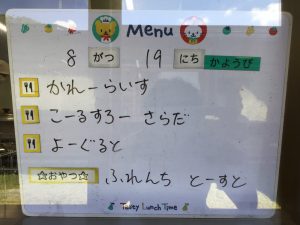 Menu
8 がつ 19 にち かようび
かれーらいす
こーるすろー さらだ
よーぐると
☆おやつ☆ ふれんち とーすと
Tasey Lunch Time